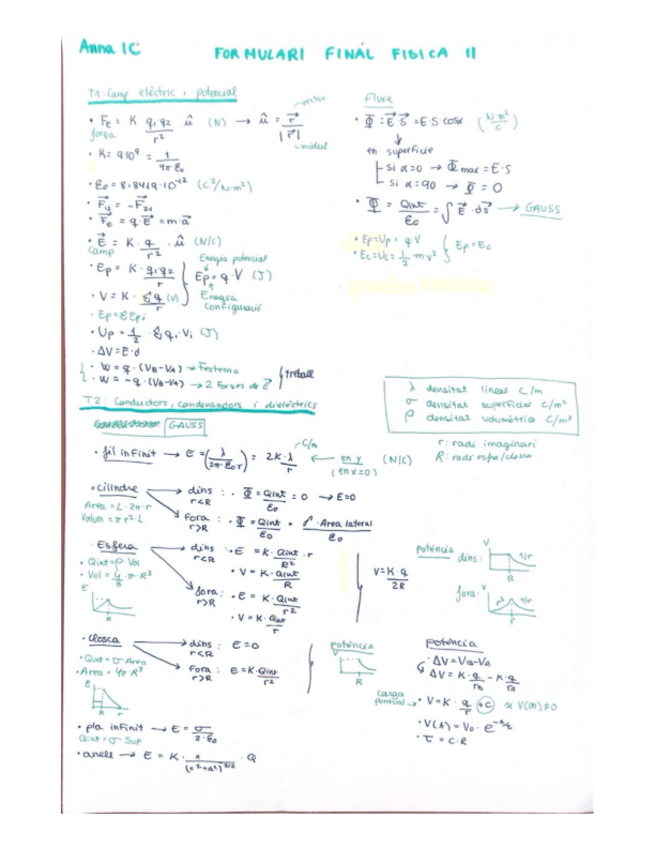 Anna 1C
FORMULARI FINAL FISICA II
T1: Camp elèctric i potencial
• Fe = K q1 q2 / r² · û (N) → û = r⃗ / |r⃗|
vector
mòdul
força
• K = 9·10⁹ = 1 / 4π ε0
• ε0 = 8.8419·10⁻¹² (C²/N·m²)
• F⃗12 = -F⃗21
• F⃗e = q·E⃗ = m·a⃗
• E⃗ = K · q / r² · û (N/C)
Camp
Energia potencial
• Ep = K · q1 q2 / r
Ep = q·V (J)
• V = K · Σq / r (V)
Energia
Configuració
• Ep = ΣEpi
• Up = 1/2 · Σ qi·Vi (J)
• ΔV = E·d
• W = q·(VB-VA) → Fexterna
• W = -q·(VB-VA) → 2 Forces de E⃗
treball
Fluxe
• Φ = E⃗·S⃗ = E·S·cosα (N·m²/C)
en superfície
si α=0 → Φmax = E·S
si α=90 → Φ = 0
• Φ = Qint / ε0 = ∫ E⃗·ds⃗ → GAUSS
• Ep = Up = q·V
• Ec = Uc = 1/2 · m v²
Ep = Ec
T2: Conductors, condensadors i dielèctrics
λ densitat lineal C/m
σ densitat superficial C/m²
ρ densitat volumètrica C/m³
r: radi imaginari
R: radi esfera/closca
GAUSS
• fil infinit → E = (λ / 2π·ε0·r) = 2K·λ / r
C/m
en y
(en x=0)
(N/C)
• Cilindre
Area = L·2π·r
Volum = π·r²·L
dins: r<R
• Φ = Qint / ε0 = 0 → E=0
Fora: r>R
• Φ = Qint / ε0 = ρ·Area lateral / ε0
• Esfera
• Qint = ρ·Vol
• Vol = 4/3·π·R³
E
R r
dins: r<R
• E = K·Qint·r / R³
• V = K·Qint / R
fora: r>R
• E = K·Qint / r²
• V = K·Qint / r
V = K·q / 2R
potència
dins:
V
1/r
R
fora:
V
r²
1/r
r
• Closca
• Qint = σ·Area
• Area = 4π·R²
E
R r
dins: r<R
E=0
Fora: r>R
E = K·Qint / r²
potència
V
R
potència
• ΔV = VB-VA
ΔV = K·q / rB - K·q / rA
Carga puntual
• V = K·q / r + C si V(∞)≠0
• V(t) = V0·e^-t/τ
• τ = C·R
• pla infinit → E = σ / 2·ε0
Qint = σ·Sup
• anell → E = K · x / (x²+a²)^3/2 · Q